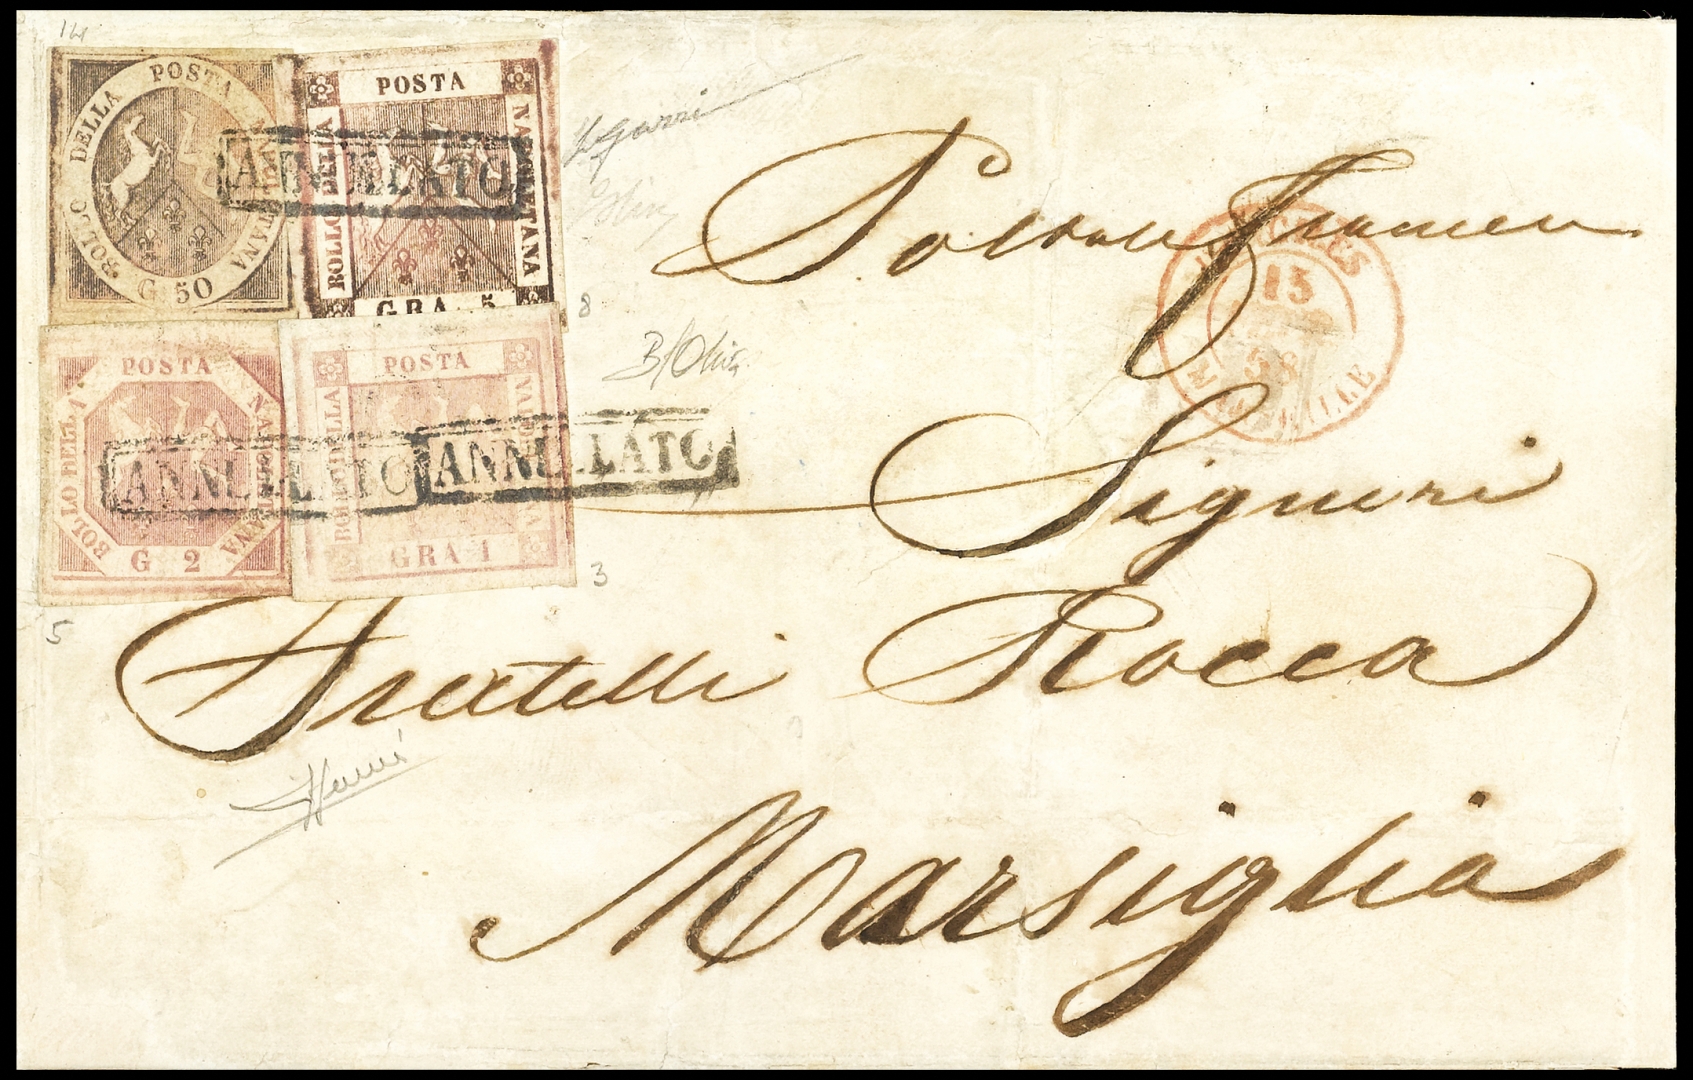 14
BOLLO DELLA POSTA NAPOLETANA
G 50
POSTA
BOLLO DELLA
NAPOLETANA
GRA 5
ANNULLATO
8
POSTA
BOLLO DELLA
NAPOLETANA
G 2
POSTA
BOLLO DELLA
NAPOLETANA
GRA 1
ANNULLATO
ANNULLATO
3
5
B/Oliva
15
58
MARSEILLE
Signori
Fratelli Rocca
Marsiglia